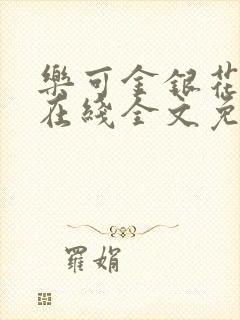 樂可金銀花
在綫全文免
羅娟